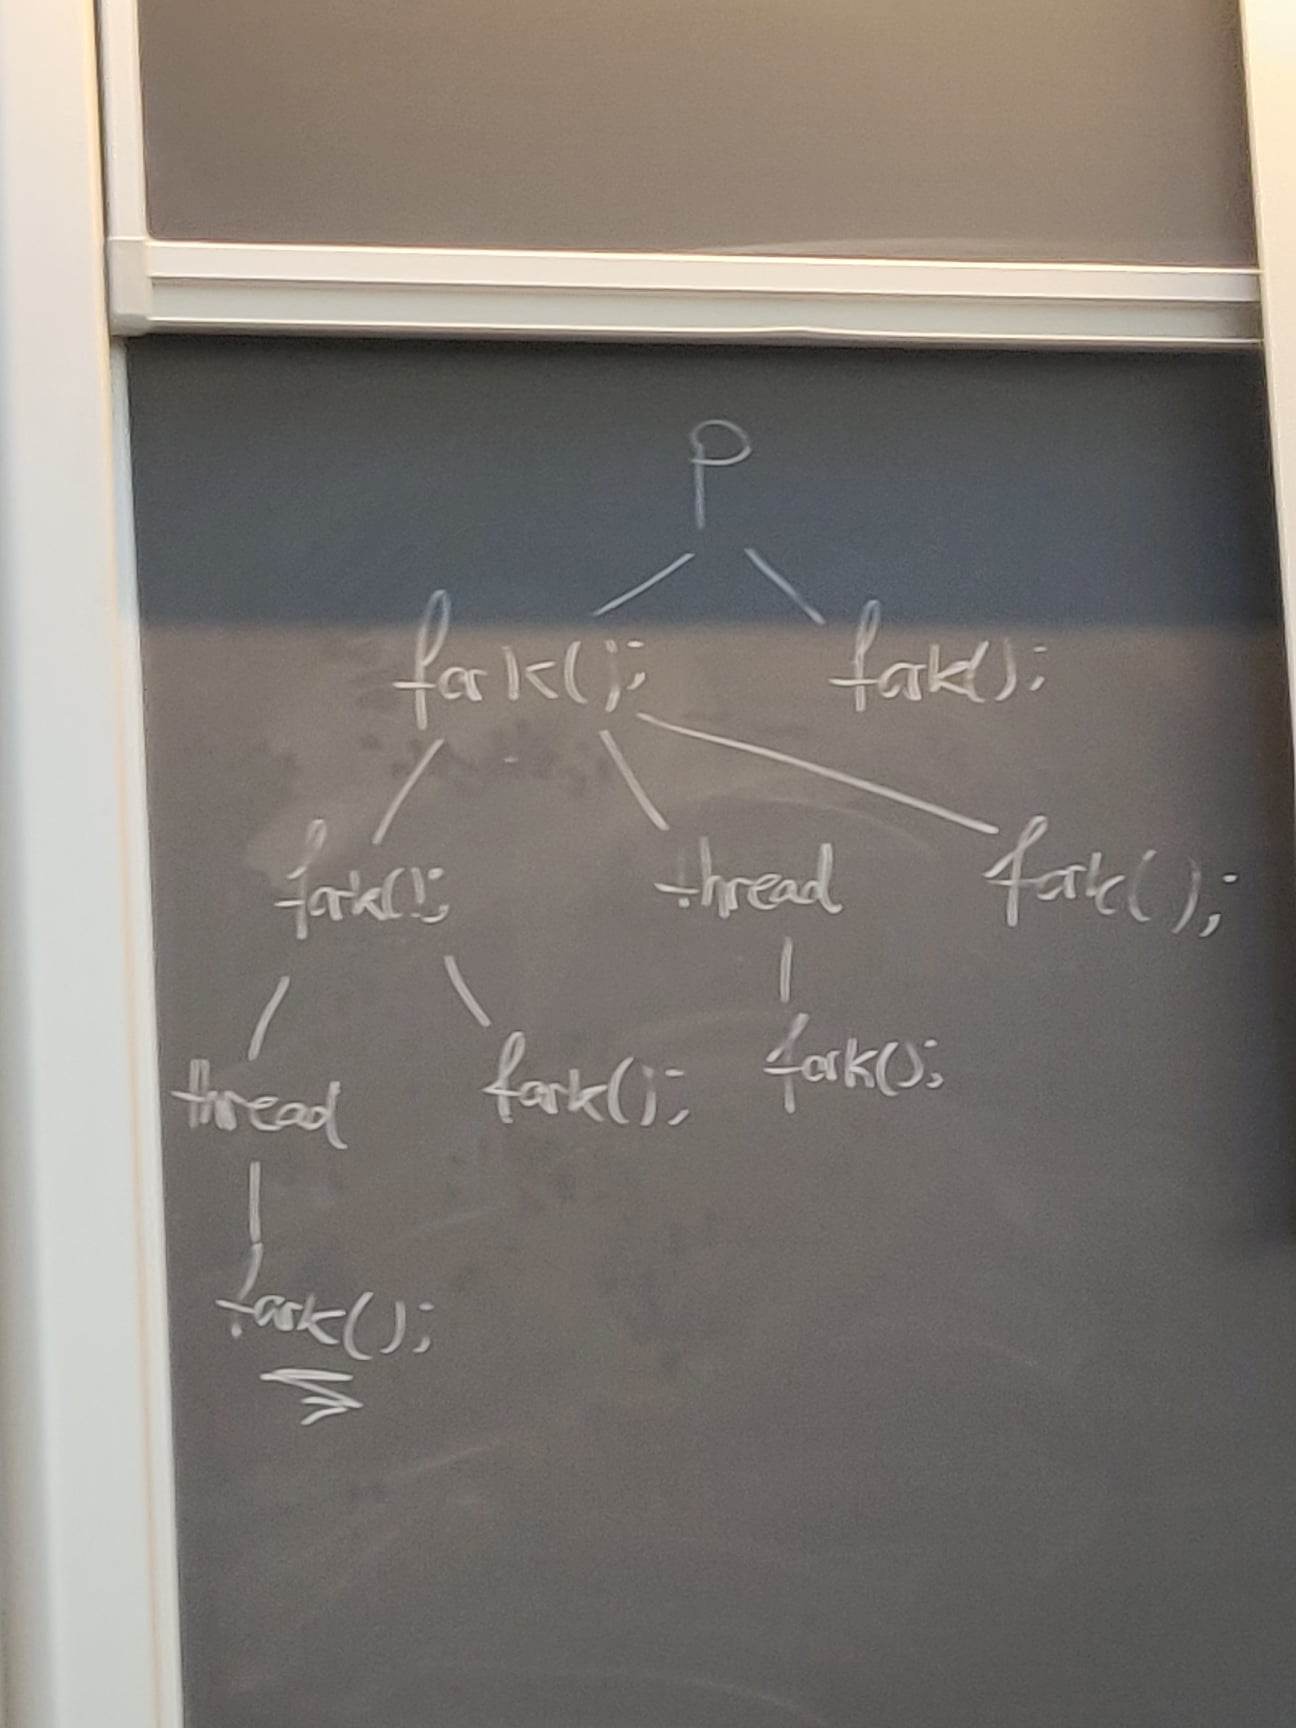 P
fork(); fork();
fork(); thread fork();
thread fork(); fork();
fork();